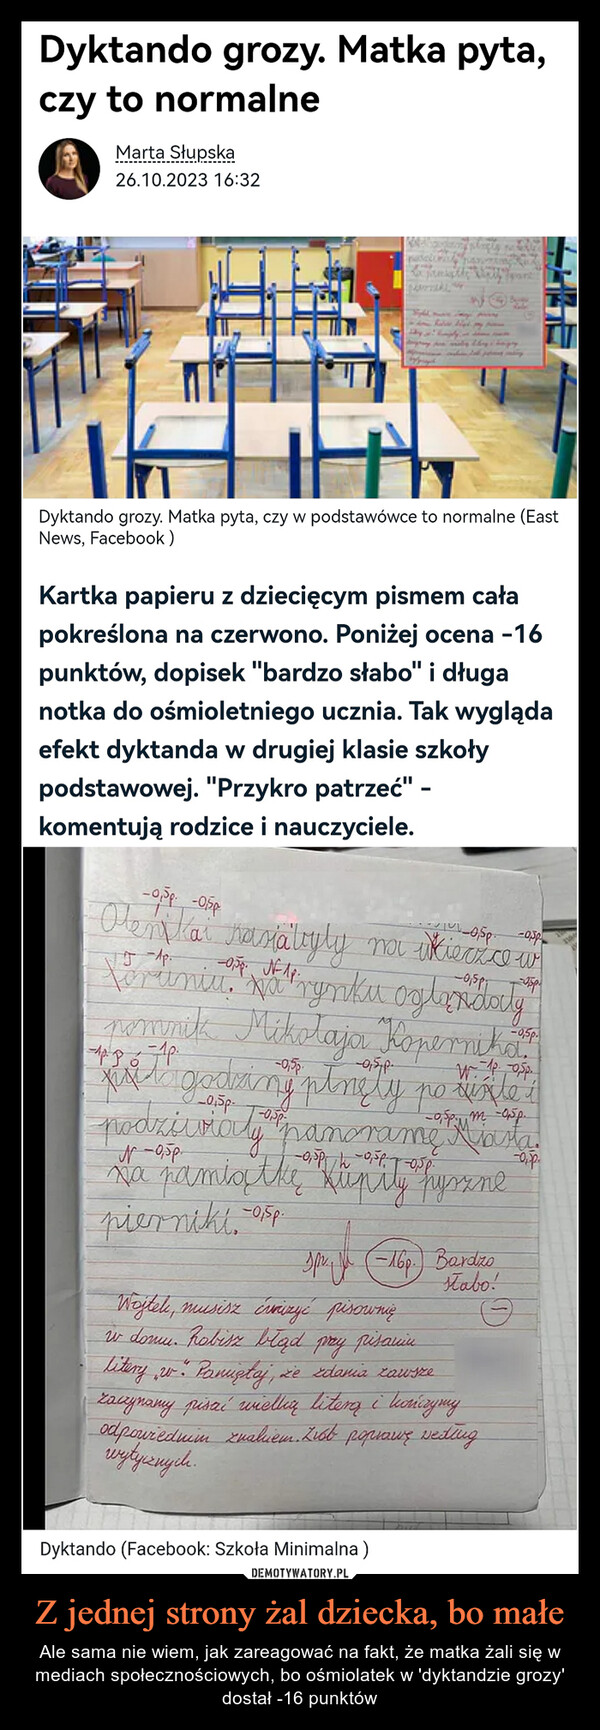 Dyktando grozy. Matka pyta,
czy to normalne
Marta Słupska
26.10.2023 16:32
Dyktando grozy. Matka pyta, czy w podstawówce to normalne (East
News, Facebook )
Kartka papieru z dziecięcym pismem cała
pokreślona na czerwono. Poniżej ocena -16
punktów, dopisek "bardzo słabo" i długa
notka do ośmioletniego ucznia. Tak wygląda
efekt dyktanda w drugiej klasie szkoły
podstawowej. "Przykro patrzeć" -
komentują rodzice i nauczyciele.
-0,5p. -0,5p. -0,5p. -0,5p.
Olenka i kasia były na wycieczce w
-1p. -0,5p. N-1p. -0,5p. -0,5p.
toruniu. na rynku oglądały
-0,5p.
pomnik Mikołaja Kopernika.
-1p. P ó -1p. -0,5p. -0,5p. W -1p. -0,5p.
godziny płnęły po i
-0,5p. -0,5p. -0,5p. m -0,5p.
podziwiały panoramę Miasta.
N -0,5p. -0,5p. k -0,5p. -0,5p. -0,5p.
na pamiątkę Kupiły pyszne
pierniki. -0,5p.
spr. -16p. Bardzo
słabo!
Wojtek, musisz ćwiczyć pisownię
w domu. Robisz błąd przy pisaniu
litery „w". Pamiętaj, że zdania zawsze
zaczynamy pisać wielką literą i kończymy
odpowiednim znakiem. Zrób poprawę według
wytycznych.
Dyktando (Facebook: Szkoła Minimalna )
DEMOTYWATORY.PL
Z jednej strony żal dziecka, bo małe
Ale sama nie wiem, jak zareagować na fakt, że matka żali się w
mediach społecznościowych, bo ośmiolatek w 'dyktandzie grozy'
dostał -16 punktów